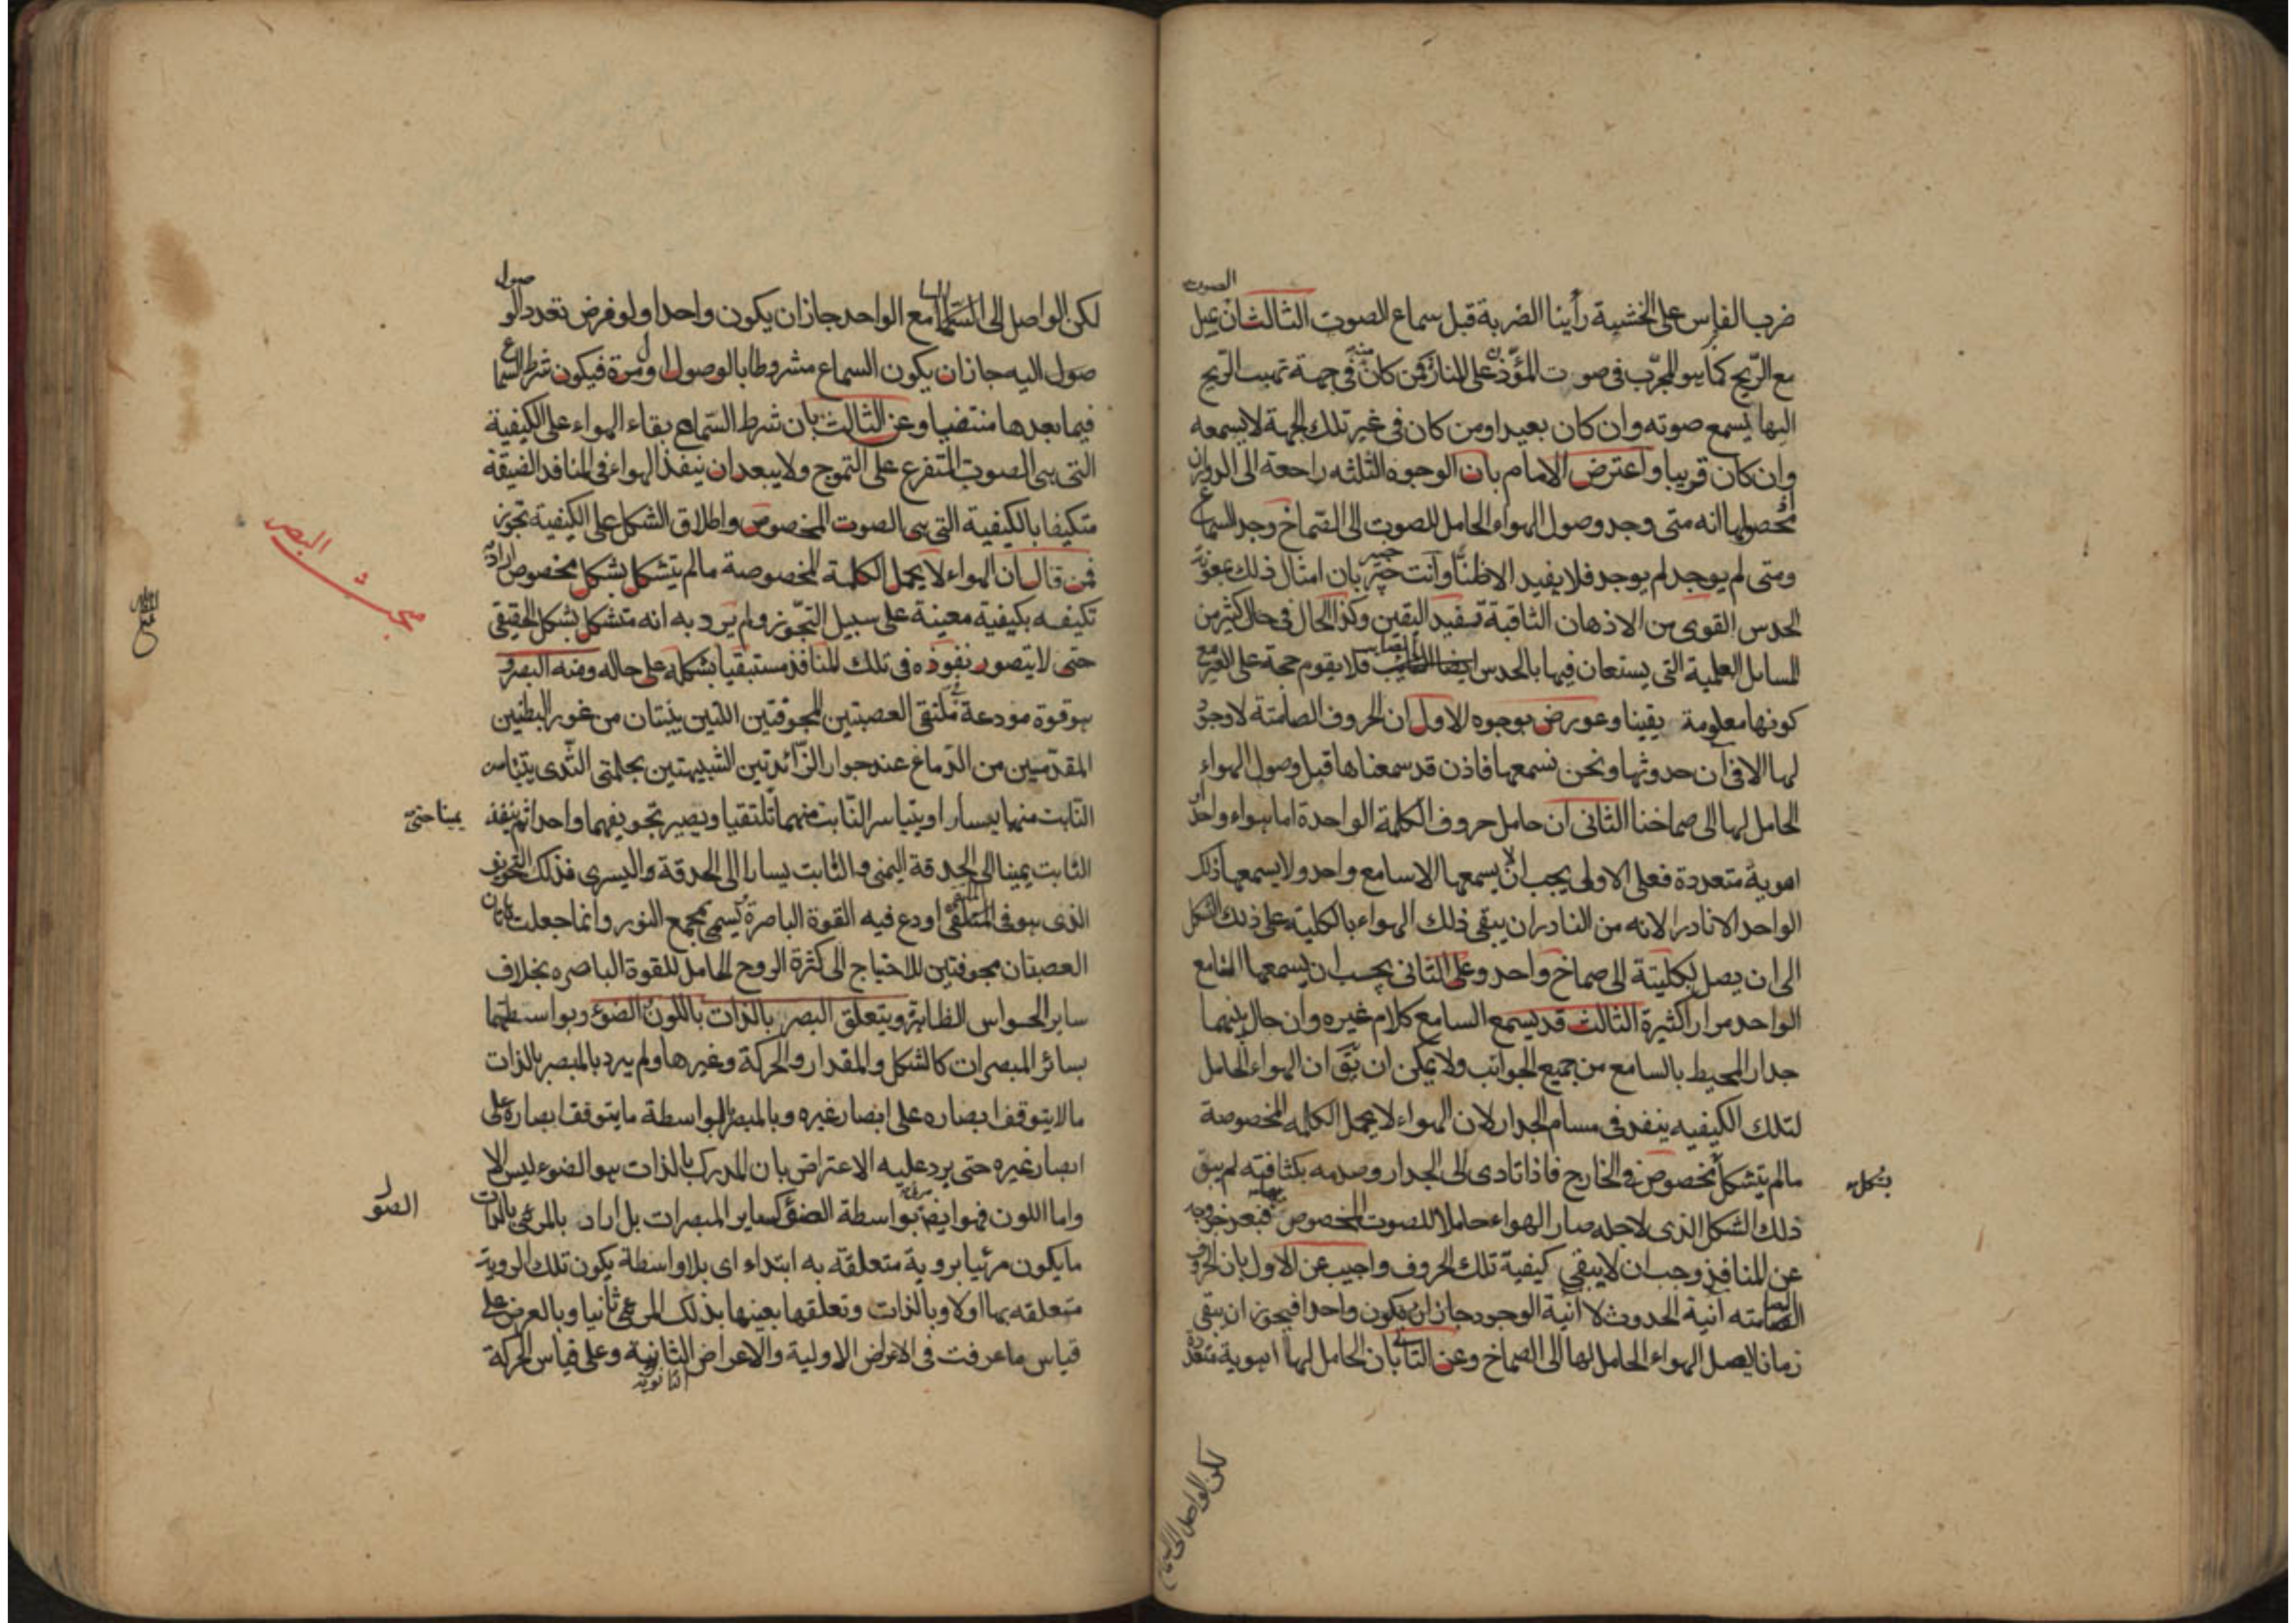 ضرب الفاس على الخشبة رأينا الضربة قبل سماع الصوت الثالث ان
الصوت
مع الريح كما هو المجرب فى صوت المؤذن على المنار فمن كان منه فى جهة تهب الريح
اليها يسمع صوته وان كان بعيدا ومن كان فى غير تلك الجهة لا يسمعه
وان كان قريبا واعترض الامام بان الوجوه الثلثه راجعة الى الدوران
محصولها انه متى وجد وصول الهواء الحامل للصوت الى الصماخ وجد السماع
ومتى لم يوجد لم يوجد فلا يفيد الا ظنا وانت خبير بان امثال ذلك بمعونة
الحدس القوى من الاذهان الثاقبة تفيد اليقين وكذا الحال فى حال كثير من
المسايل العلمية التى يستعان فيها بالحدس فلا يقوم حجة على الغير مع
كونها معلومة يقينا وعورض بوجوه الاول ان الحروف الصامتة لا وجود
لها الا فى آن حدوثها ونحن نسمعها فاذن قد سمعناها قبل وصول الهواء
الحامل لها الى صماخنا الثانى ان حامل حروف الكلمة الواحدة اما هواء واحد او
اهوية متعددة فعلى الاولى يجب ان لا يسمعها الا سامع واحد ولا يسمعها ذلك
الواحد الا نادرا لانه من النادر ان يبقى ذلك الهواء بالكلية على ذلك الشكل
الى ان يصل بكليتة الى صماخ واحد وعلى الثانى يجب ان يسمعها السامع
الواحد مرارا كثيرة الثالث قد يسمع السامع كلام غيره وان حال بينهما
جدار المحيط بالسامع من جميع الجوانب ولا يمكن ان يق ان الهواء الحامل
لتلك الكيفيه ينفد فى مسام الجدار لان الهواء لا يحمل الكلمه المخصوصة
مالم يتشكل مخصوص فى الخارج فاذا تادى الى الجدار وصدمه بكثافته لم يبق
بشكل
ذلك الشكل الذى لاجله صار الهواء حاملا للصوت المخصوص فبعد خروجه
عن المنافذ وجب ان لا يبقى كيفية تلك الحروف واجيب عن الاول بان الحروف
الصامته آنية الحدوث لا آنية الوجود جاز ان يكون واحدا فيجوز ان يبقى
زمانا يصل الهواء الحامل لها الى الصماخ وعن الثانى بان الحامل لها اهوية متعددة
لكن الواصل الى
لكن الواصل الى السامع الواحد جاز ان يكون واحدا ولو فرض تعدد الو
صول
صول اليه جاز ان يكون السماع مشروطا بالوصول اول مرة فيكون شرط السماع
فيما بعدها منتفيا وعن الثالث بان شرط السماع بقاء الهواء على الكيفية
التى هى الصوت المتفرع على التموج ولا يبعد ان ينفذ الهواء فى المنافذ الضيقة
متكيفا بالكيفية التى هى الصوت المخصوص واطلاق الشكل على الكيفية تجوز
مبحث البصر
فمن قال ان الهواء لا يحمل الكلمة المخصوصة مالم يتشكل بشكل مخصوص اراد
تكيفه بكيفية معينة على سبيل التجوز ولم يرد به انه متشكل بشكل الحقيقى
حتى لا يتصور نفوذه فى تلك المنافذ مستبقيا بشكله على حاله ومنه البصر و
هو قوة مودعة فى ملتقى العصبتين المجوفتين اللتين ينبتان من غور البطنين
المقدمين من الدماغ عند جوار الزائدتين الشبيهتين بحلمتى الثدى يتيامن
النابت منهما يسارا ويتياسر النابت منهما تلتقيا ويصير تجويفهما واحدا ثم ينفذ
يمينا حتى
النابت يمينا الى الحدقة اليمنى والنابت يسارا الى الحدقة واليسرى فذلك التجويف
الذى هو فى الملتقى اودع فيه القوة الباصرة يسمى مجمع النور وانما جعلت هاتان
العصبتان مجوفتين للاحتياج الى كثرة الروح الحامل للقوة الباصره بخلاف
ساير الحواس الظاهرة ويتعلق البصر بالذات باللون والضوء وبواسطتهما
بسائر المبصرات كالشكل والمقدار والحركة وغيرها ولم يرد بالمبصر بالذات
مالا يتوقف ابصاره على ابصار غيره وبالمبصر بالواسطة ما يتوقف ابصاره على
ابصار غيره حتى يرد عليه الاعتراض بان المدرك بالذات هو الضوء ليس الا
واما اللون فهو ايضا بواسطة الضؤ كساير المبصرات بل اراد بالمرئى بالذات
الضو
ما يكون مرئيا بروية متعلقة به ابتداء اى بلا واسطة يكون تلك الروية
متعلقه بها اولا وبالذات وتعلقها بعينها بذلك المرئى ثانيا وبالعرض على
قياس ما عرفت فى الاعراض الاولية والاعراض الثانية وعلى قياس الحركة
الثانوية